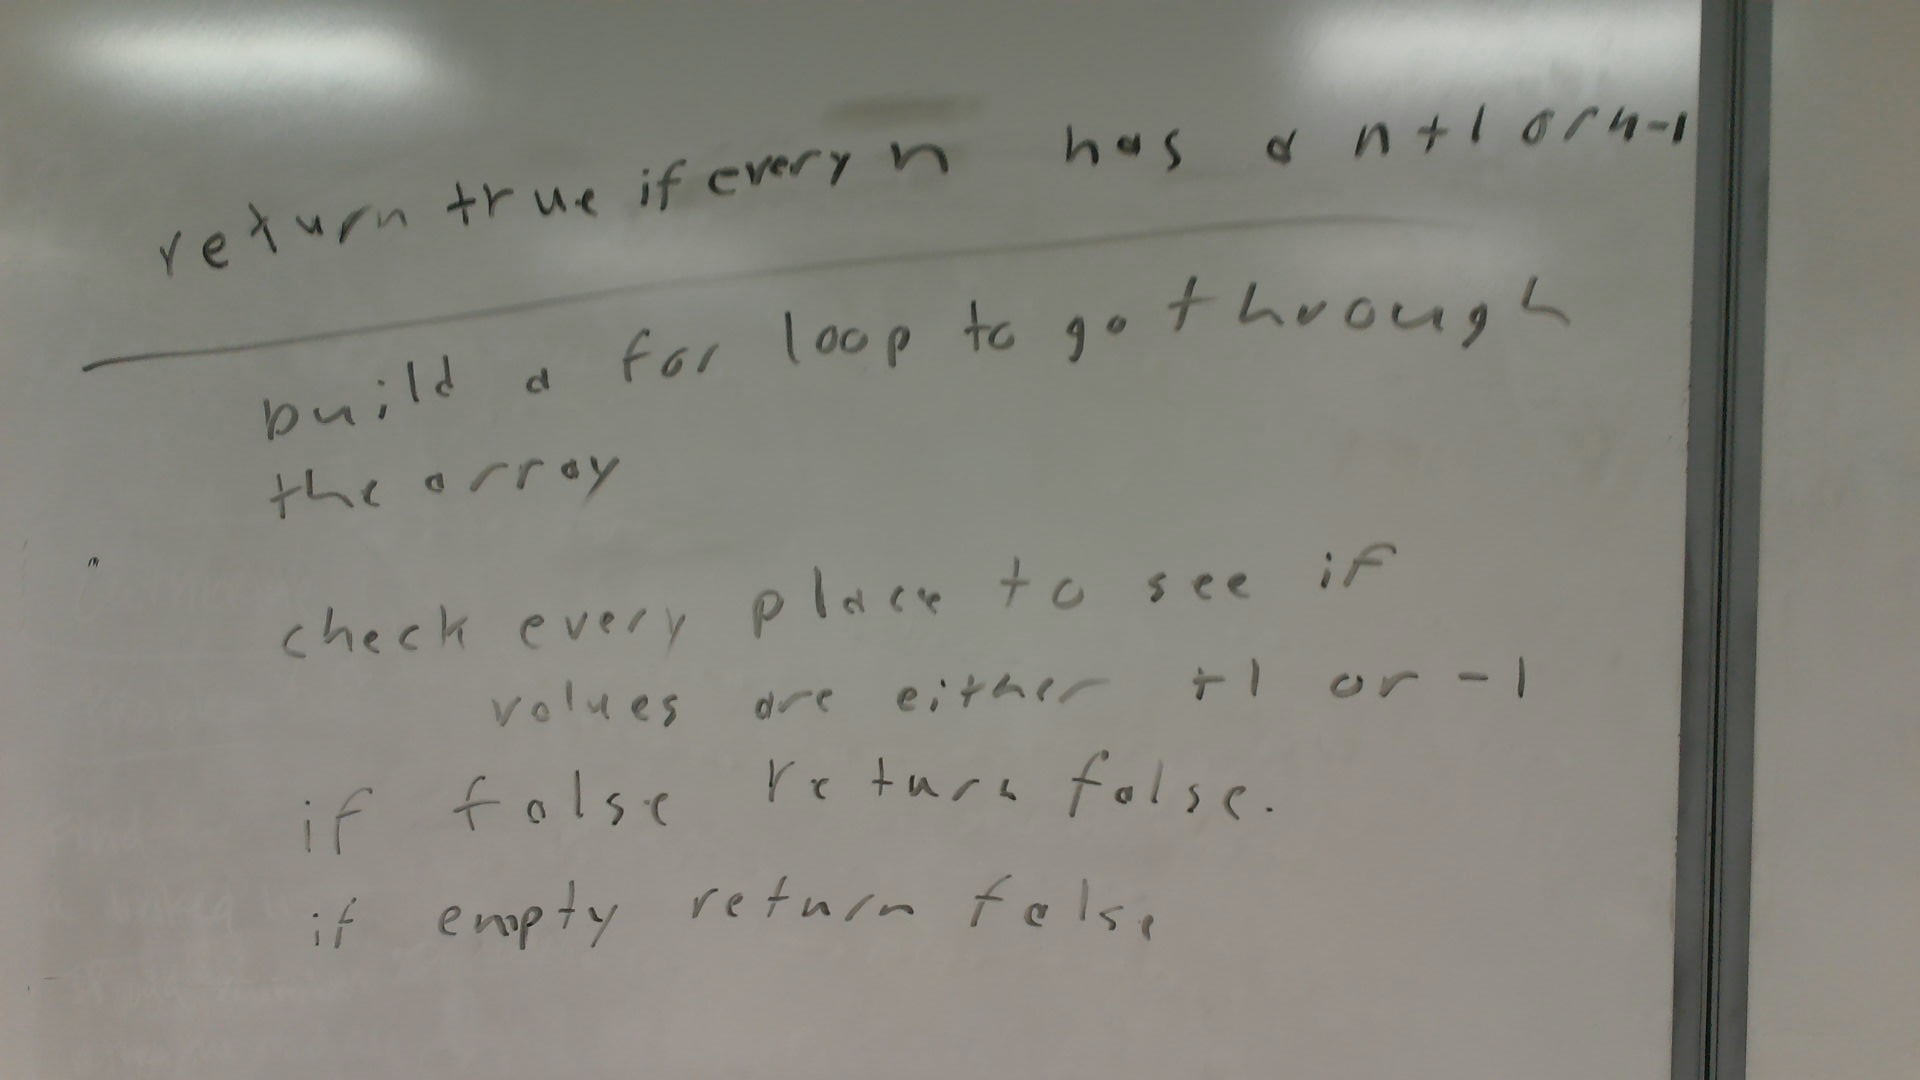 return true if every n has a n+1 or n-1
build a for loop to go through
the array
check every place to see if
values are either +1 or -1
if false return false.
if empty return false